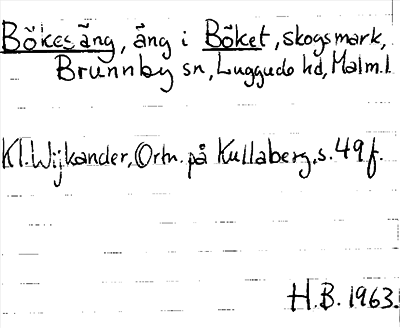 Bökesäng, äng i Böket, skogsmark,
Brunnby sn, Luggude hd, Malm.l.
Kl. Wijkander, Ortn. på Kullaberg, s. 49 f.
H.B. 1963.